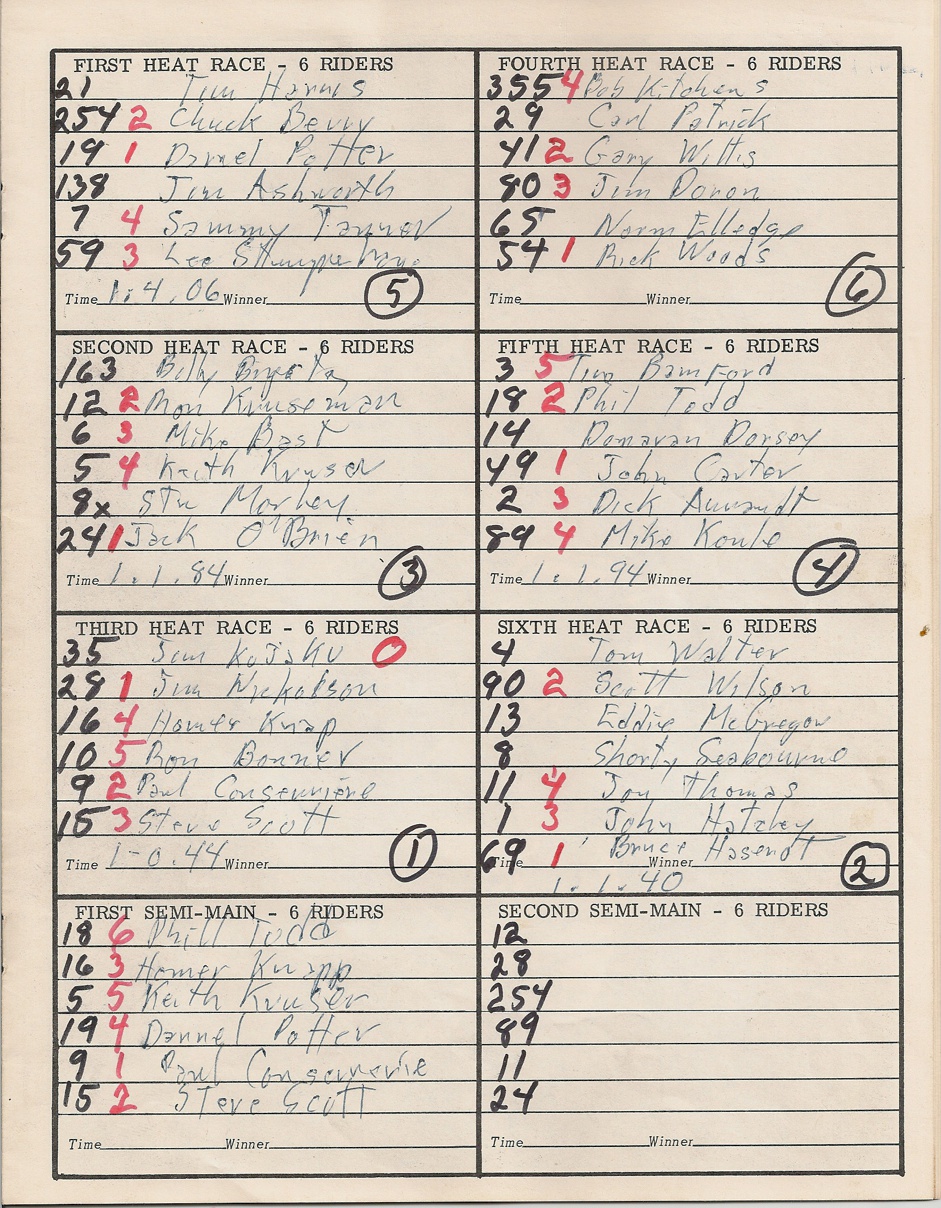 FIRST HEAT RACE - 6 RIDERS
21 Tim Harris
254 2 Chuck Berry
19 1 Darnel Potter
138 Jim Ashworth
7 4 Sammy Tanner
59 3 Lee
Time 1.4.06 Winner 5
SECOND HEAT RACE - 6 RIDERS
163 Billy
12 2 Ron Kruseman
6 3 Mike Bast
5 4 Keith Kruser
8x Stu Morley
24 1 Jack O'Brien
Time 1.1.84 Winner 3
THIRD HEAT RACE - 6 RIDERS
35 Jim Kojsku 0
28 1 Jim Nickolson
16 4 Homer Knap
10 5 Ron Bonner
9 2 Paul Conserviene
15 3 Steve Scott
Time 1-0.44 Winner 1
FIRST SEMI-MAIN - 6 RIDERS
18 6 Phill Todd
16 3 Homer Knapp
5 5 Keith Kruser
19 4 Dannel Potter
9 1 Paul
15 2 Steve Scott
Time Winner
FOURTH HEAT RACE - 6 RIDERS
355 4 Bob Kitchens
29 Carl Patrick
41 2 Gary Willis
80 3 Jim Doron
65 Norm Elledge
54 1 Rick Woods
Time Winner 6
FIFTH HEAT RACE - 6 RIDERS
3 5 Tim Bamford
18 2 Phil Todd
14 Donavan Dorsey
49 1 John Carter
2 3 Dick
89 4 Mike Konle
Time 1.1.94 Winner 4
SIXTH HEAT RACE - 6 RIDERS
4 Tom Walter
90 2 Scott Wilson
13 Eddie McGregor
8 Shorty Seabourne
11 4 Jon Thomas
1 3 John Hateley
69 1 Bruce Hasendt
Time Winner 2
1.1.40
SECOND SEMI-MAIN - 6 RIDERS
12
28
254
89
11
24
Time Winner